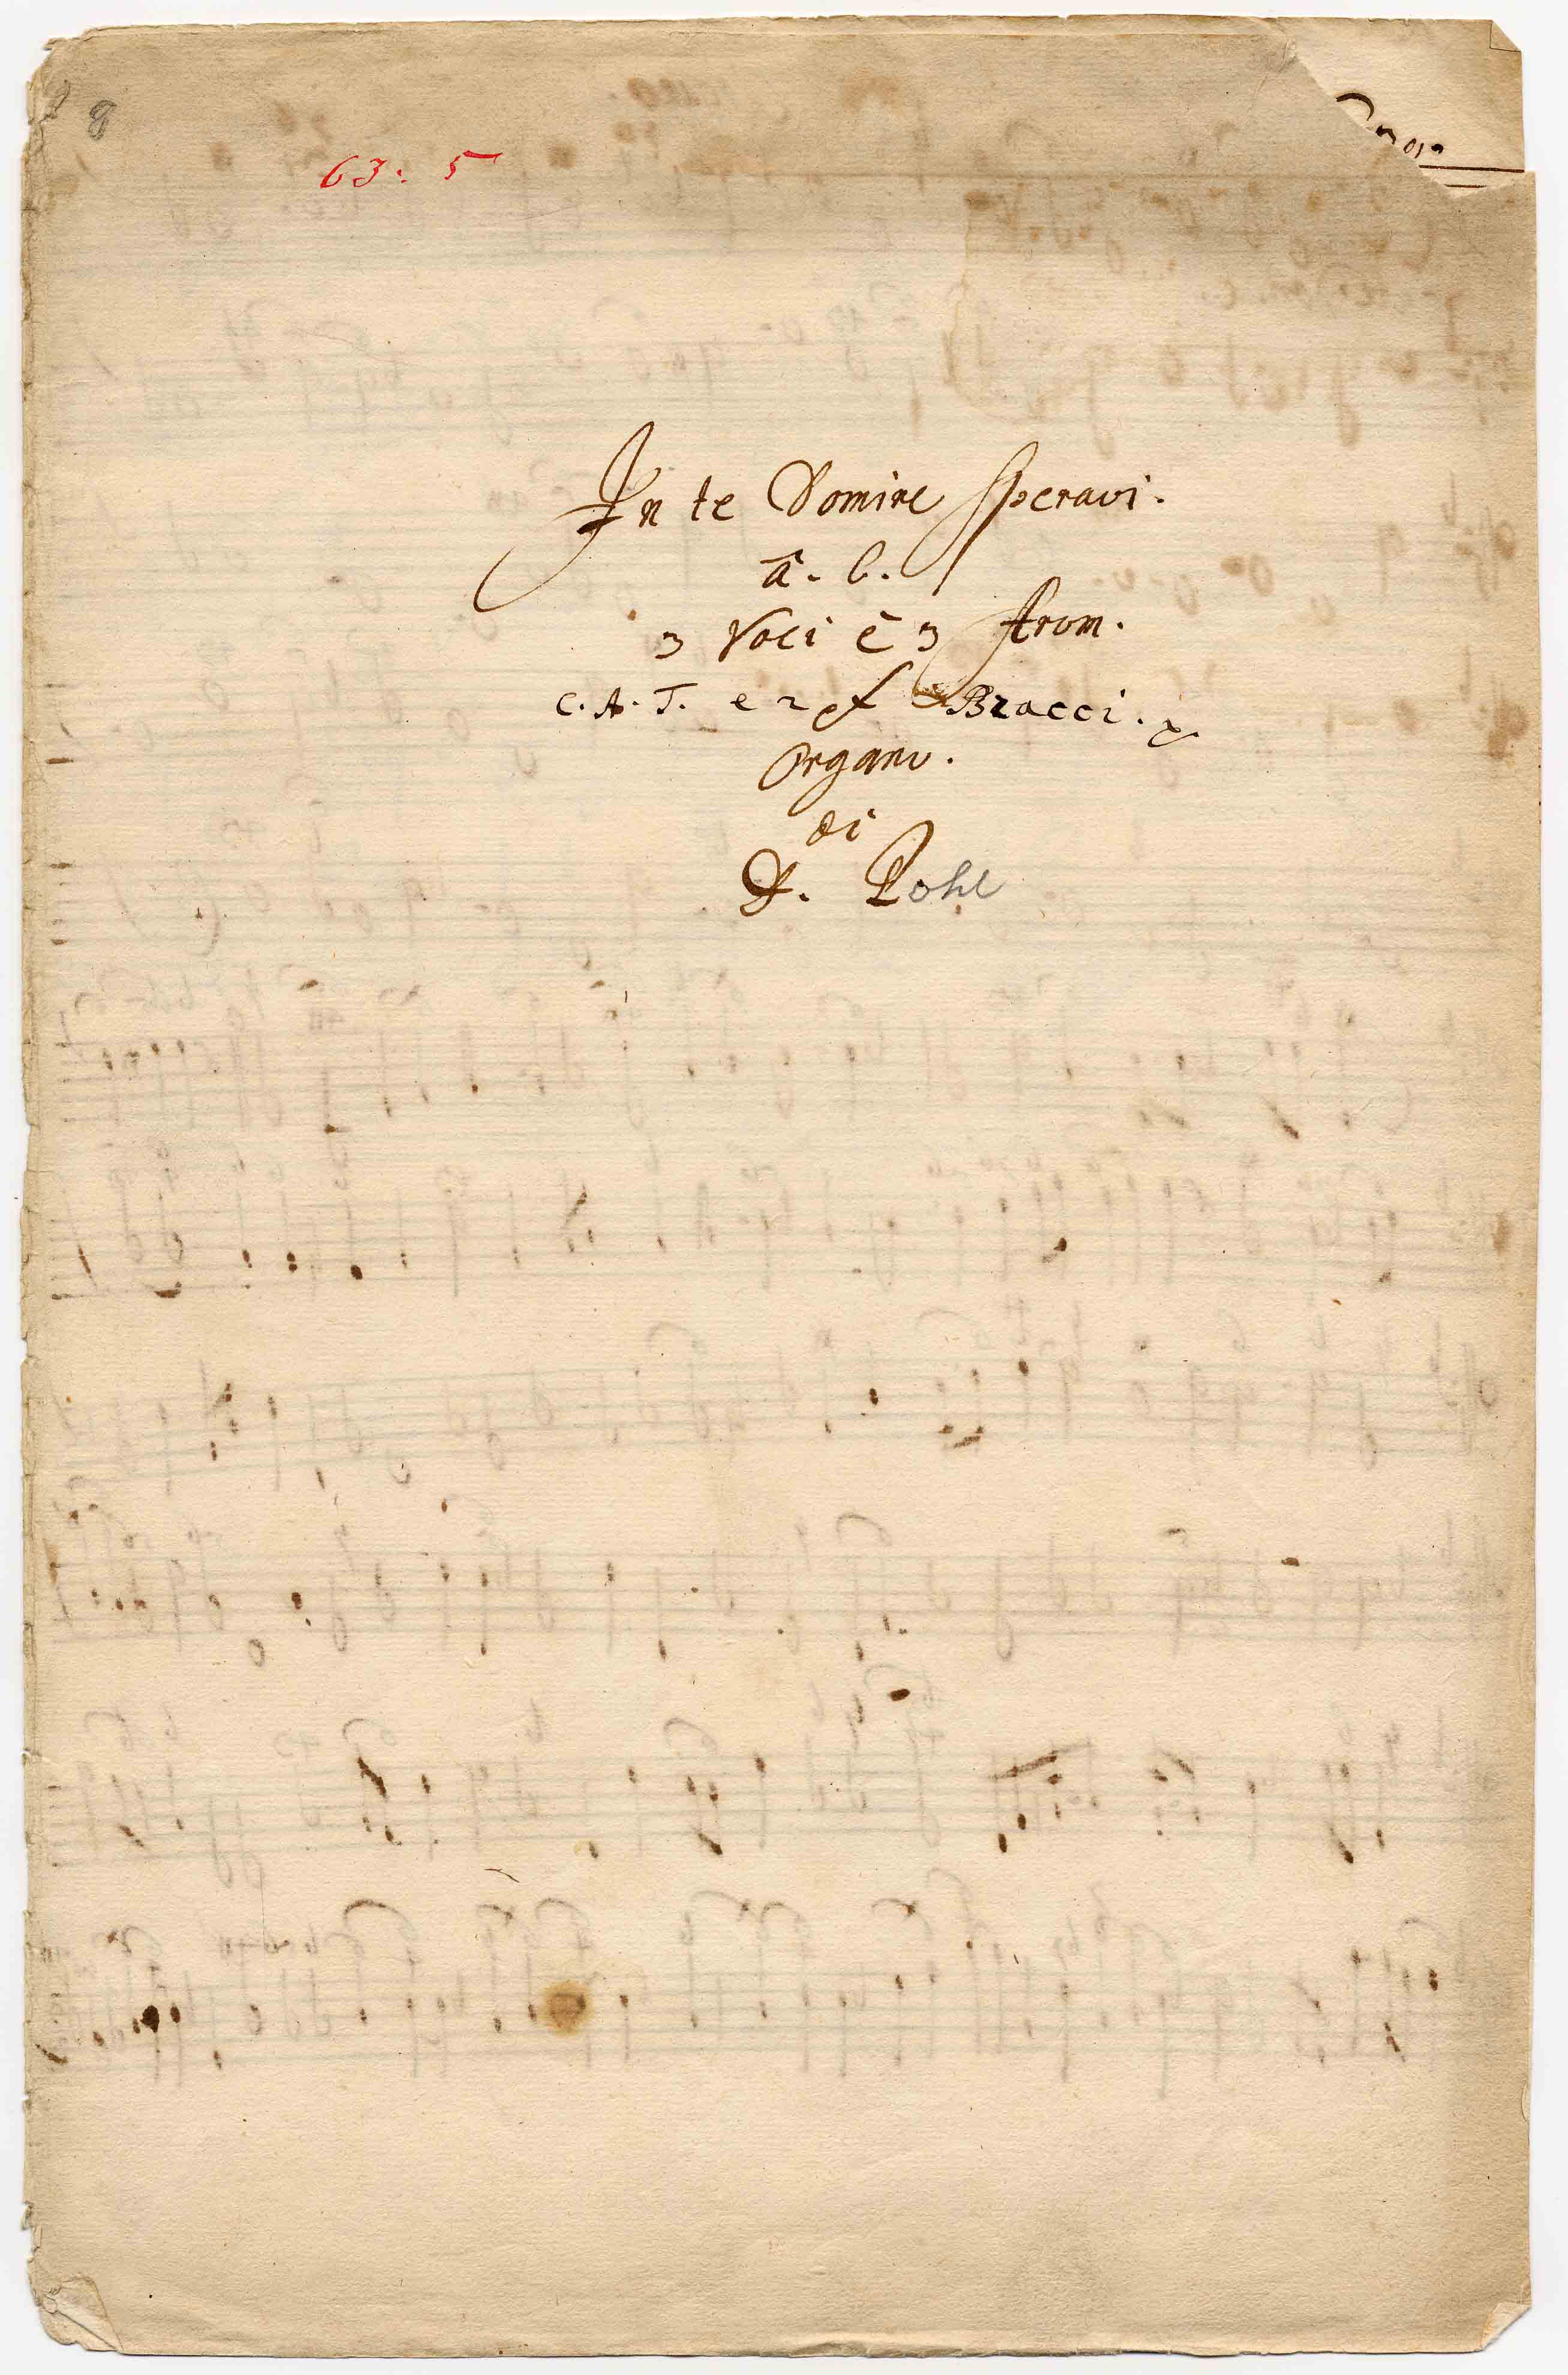 8
63: 5
In te Domine speravi.
â. 6.
3 Voci è 3 strom.
C. A. T. e 2 Bracci.
Organo.
di
D. Pohl